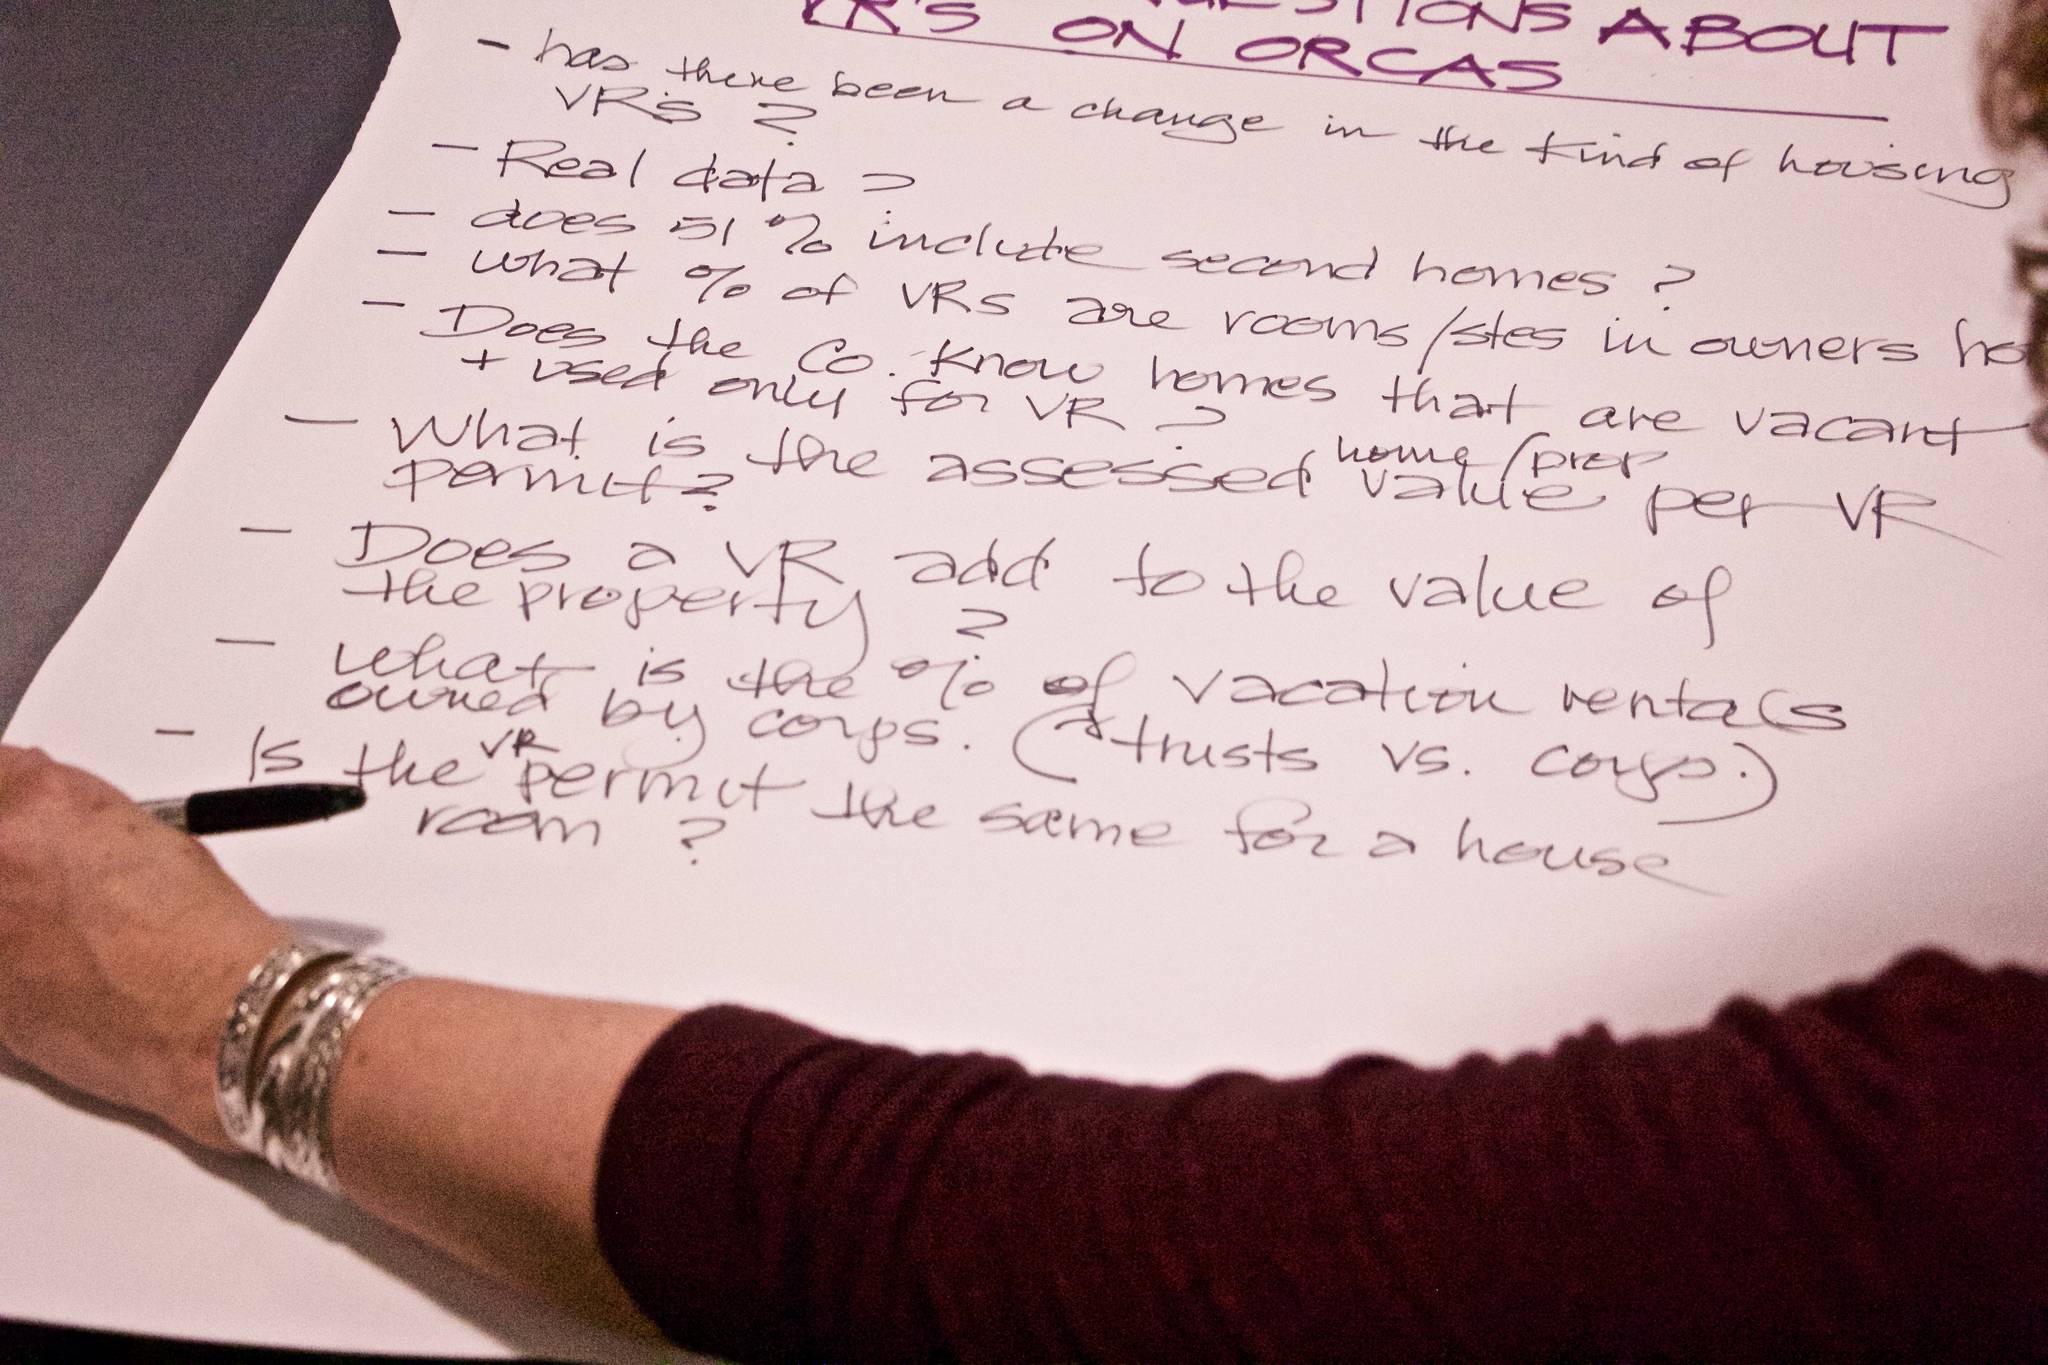 QUESTIONS ABOUT
VR'S ON ORCAS
- has there been a change in the kind of housing
VR's ?
- Real data ?
- does 51% include second homes ?
- what % of VRs are rooms/stes in owners ho
- Does the Co. know homes that are vacant
+ used only for VR ?
home/prop
- What is the assessed value per VR
permit?
- Does a VR add to the value of
the property ?
- What is the % of vacation rentals
owned by corps. (trusts vs. corps.)
VR
- Is the permit the same for a house
room ?